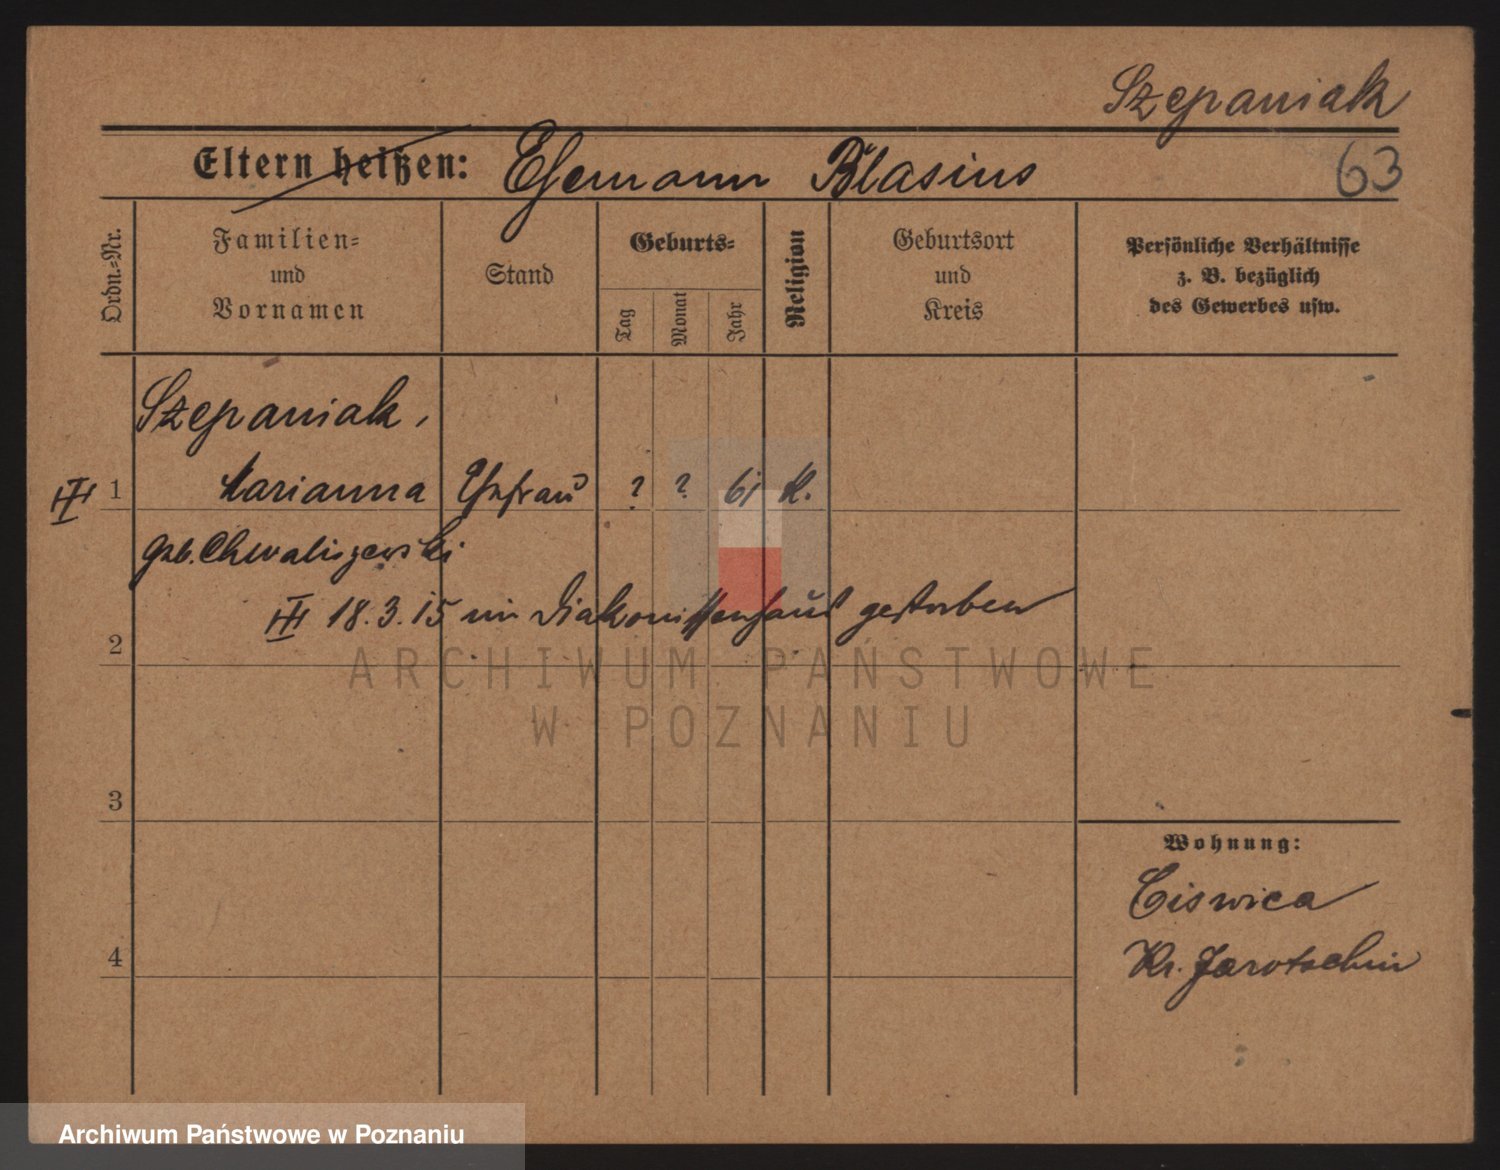 Szepaniak
Eltern heißen: Ehemann Blasius
63
Ordn.-Nr.
Familien-
und
Vornamen
Stand
Geburts-
Tag
Monat
Jahr
Religion
Geburtsort
und
Kreis
Persönliche Verhältnisse
z. B. bezüglich
des Gewerbes usw.
Szepaniak,
1 Marianna Ehefrau ? ? 61 K.
geb. Chwaliszewski
18.3.15 im Diakonissenhaus gestorben
2
ARCHIWUM PAŃSTWOWE
W POZNANIU
3
Wohnung:
Ciswica
4
Kr. Jarotschin
Archiwum Państwowe w Poznaniu